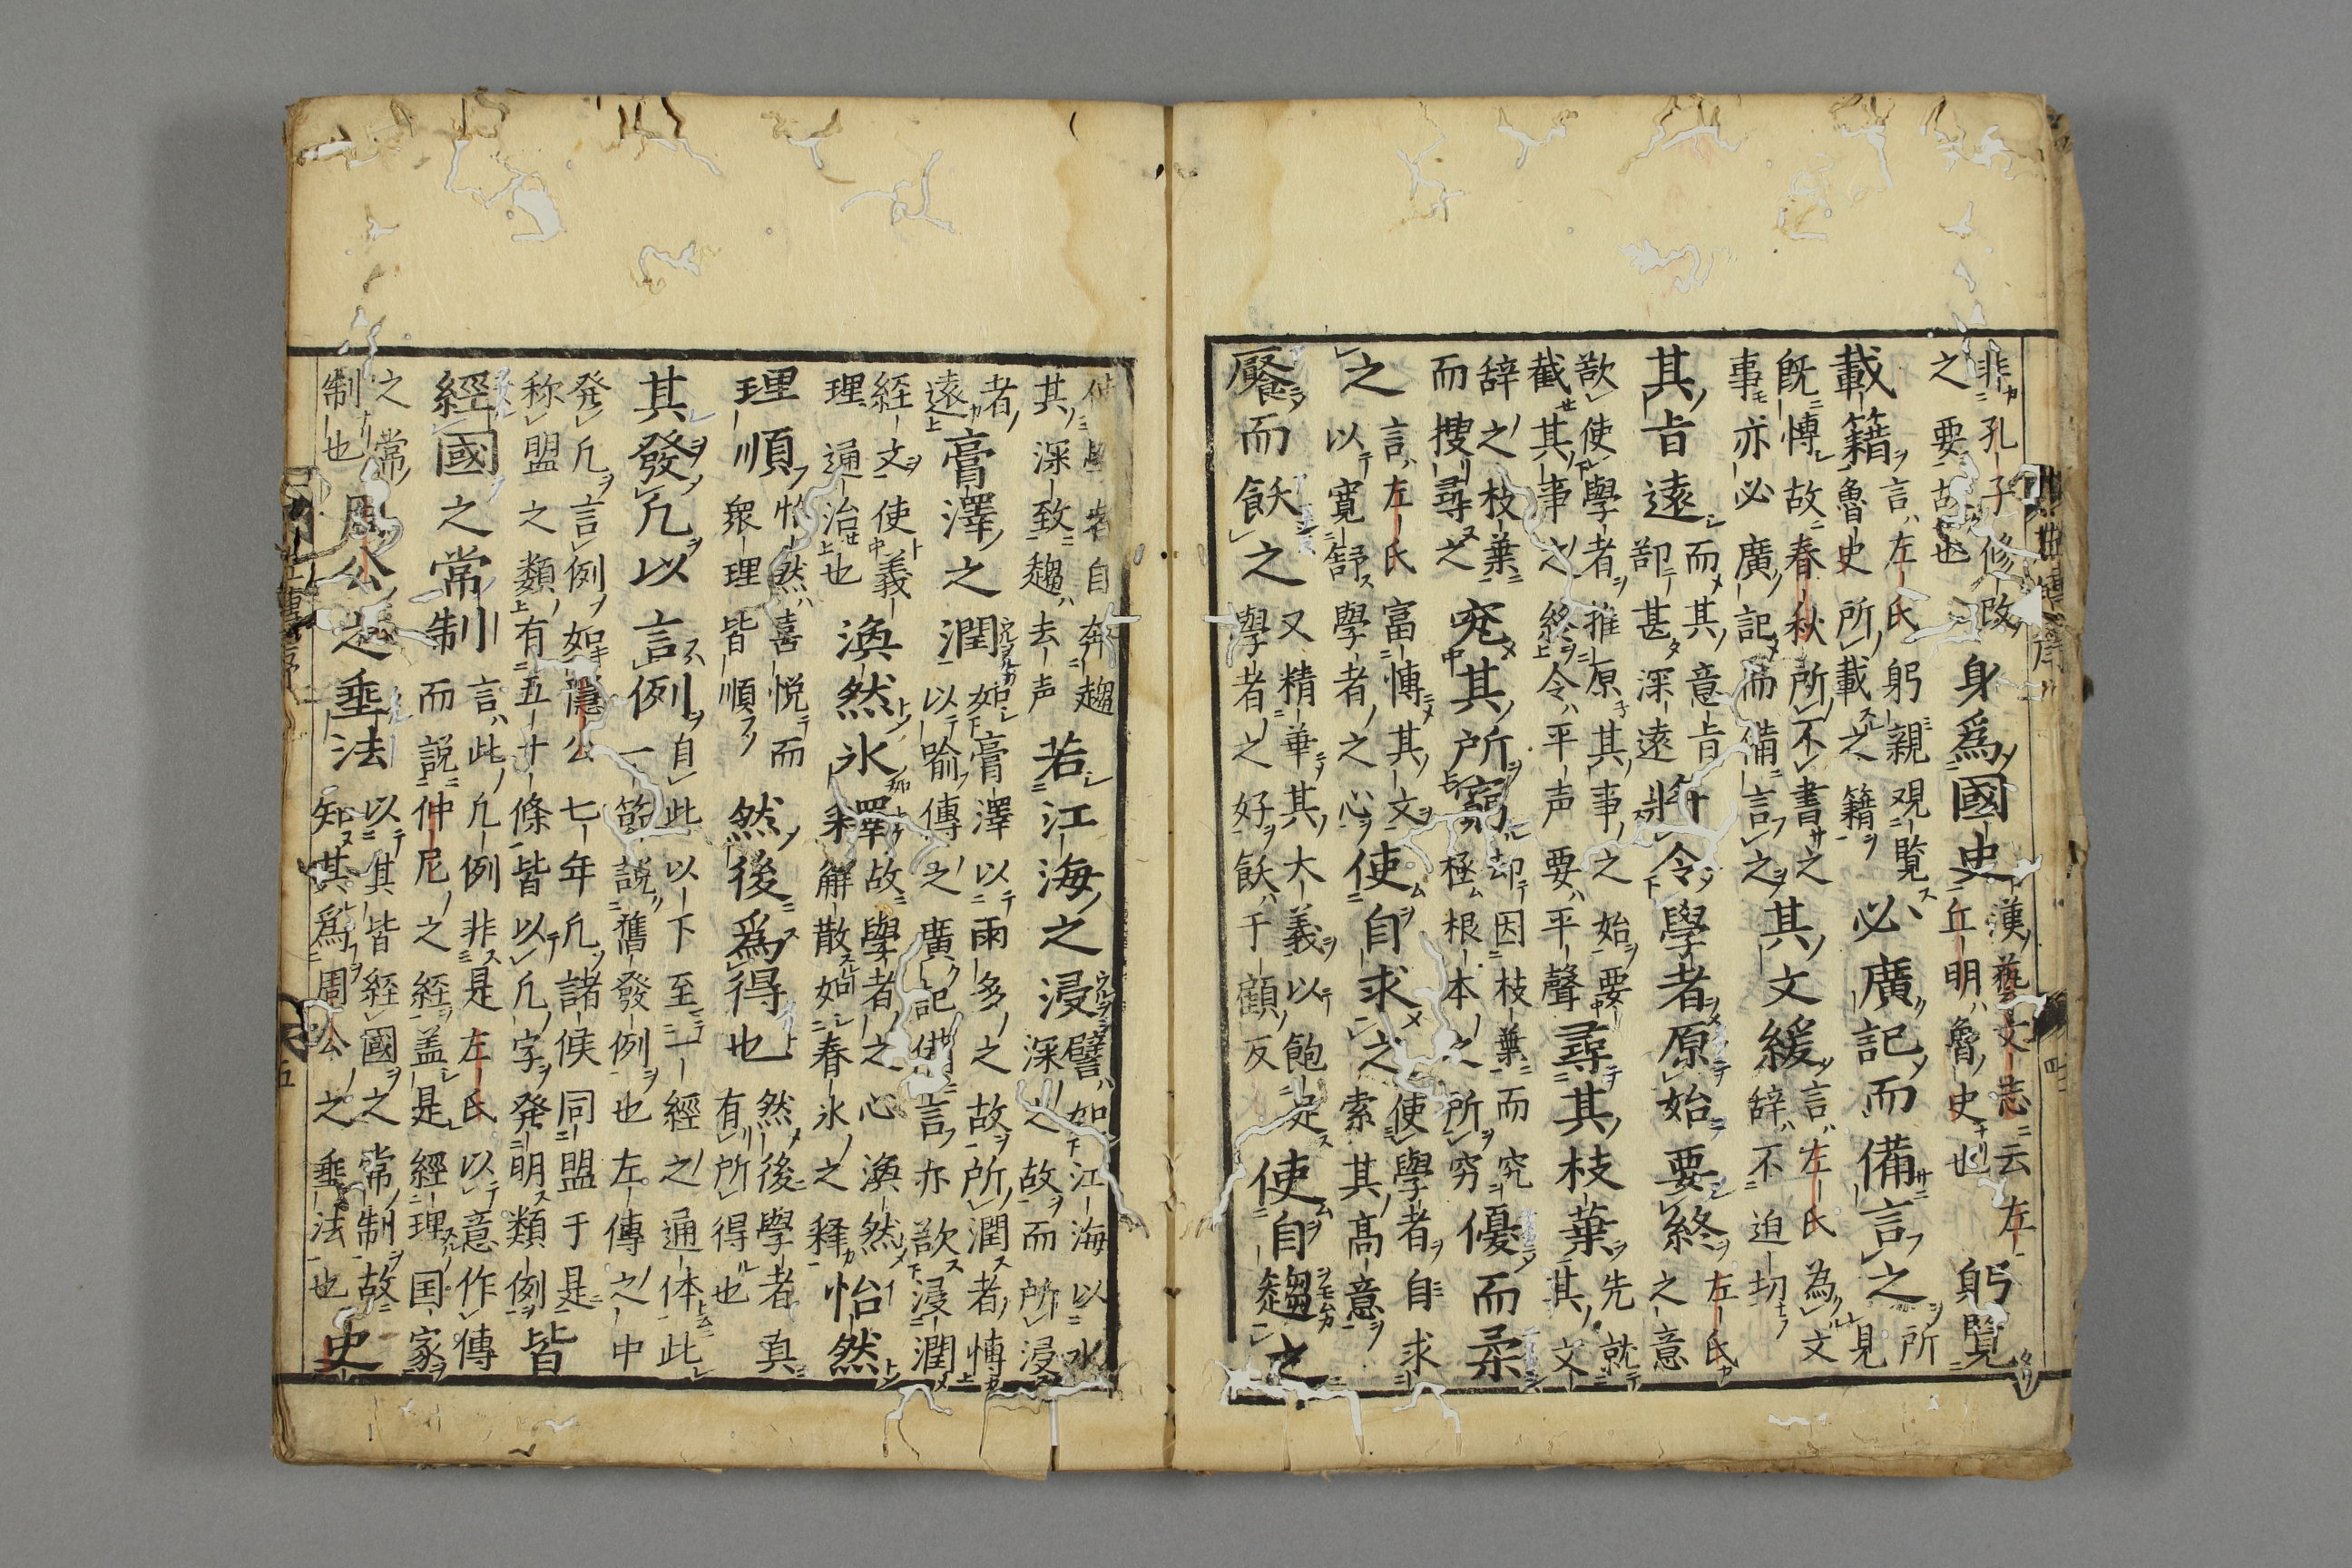 非孔子修改
之要故也
身爲國史
漢藝文志云左
丘明魯史也
躬覽
載籍
言左氏躬親观覧
魯史所載之籍
必廣記而備言之
所
見
既愽故春秋所不書之
事亦必廣記而備言之
其文緩
言左氏為文
辞不迫切
其旨遠
而其意旨
郤甚深遠
將令學者原始要終
左氏
之意
歆使學者推原其事之始要
截其事之終令平声要平聲
尋其枝葉
先就
其文
辞之枝葉
而搜尋之
究其所窮
却因枝葉而究
極根本之所穷
優而柔
之
言左氏富愽其文
以寛舒學者之心
使自求之
使學者自求
索其高意
饜而飫之
又精華其大義以飽足
學者之好飫千顧反
使自趨之
使學者自奔趨
其深致趨去声
若江海之浸
譬如江海以水
深之故而所浸
者
遠
膏澤之潤
如膏澤以雨多之故所潤者愽
以喻傳之廣記備言亦欲浸潤
経文使義
理通治也
渙然氷釋
故學者之心渙然
解散如春氷之释
怡然
理順
怡然喜悦而
衆理皆順
然後爲得也
然後學者真
有所得也
其發凡以言例
自此以下至一經之通体此
一節説舊發例也左傳之中
発凡言例如隱公七年凡諸侯同盟于是
称盟之類有五十條皆以凡字発明類例
皆
經國之常制
言此凡例非是左氏以意作傳
而説仲尼之經盖是經理国家
之常
制也
周公之垂法
以其皆經國之常制故
知其爲周公之垂法也
史